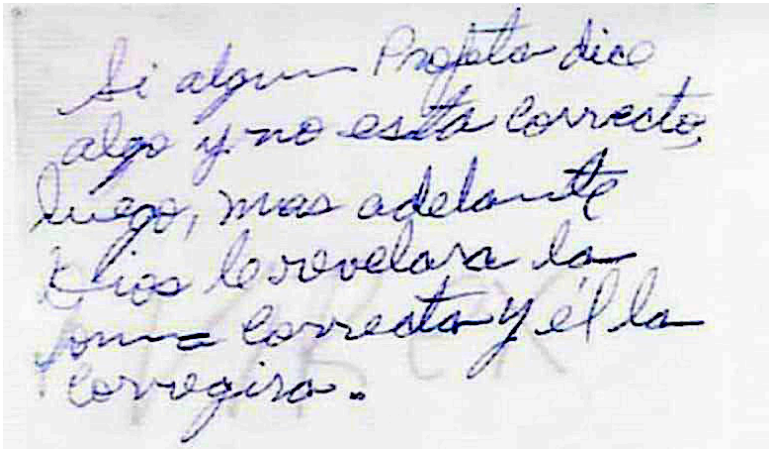 Si algun Profeta dice
algo y no está correcto,
luego, mas adelante
Dios le revelara la
forma correcta y él la
corregira.